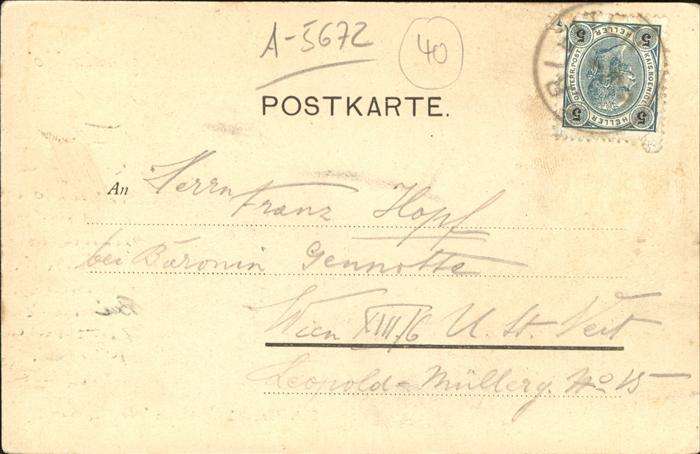 A-5672
40
5 5
HELLER
OESTERR. POST
KAIS. KOENIGL.
HELLER
5 5
POSTKARTE.
An Herrn
Franz Hopf
bei Baronin Gennotte
Wien XIII/6 U. St. Veit
Leopold-Müllerg. No 15